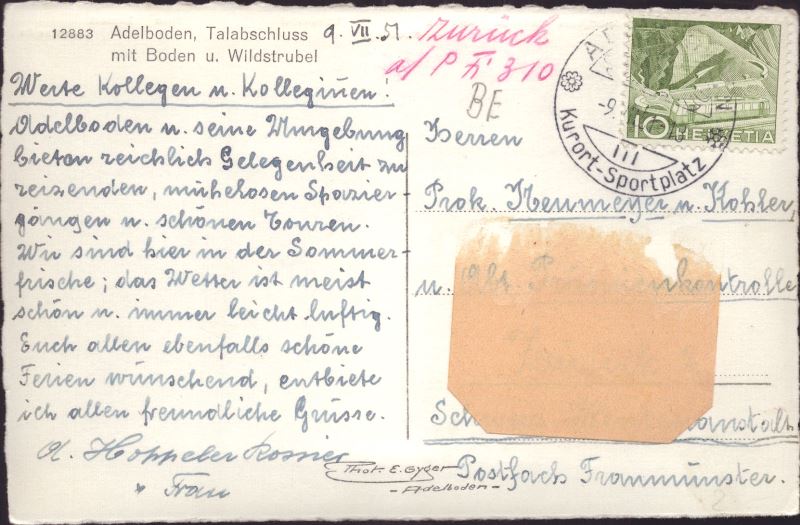 12883 Adelboden, Talabschluss
mit Boden u. Wildstrubel
9. VII. 51.
Zurück
a/P Fi 310
BE
Werte Kollegen u. Kolleginnen!
Adelboden u. seine Umgebung
bieten reichlich Gelegenheit zu
reizenden, mühelosen Spazier-
gängen u. schönen Touren.
Wir sind hier in der Sommer-
frische; das Wetter ist meist
schön u. immer leicht luftig.
Euch allen ebenfalls schöne
Ferien wünschend, entbiete
ich allen freundliche Grüsse.
A. Hoppeler
Frau
Phot. E. Gyger
- Adelboden -
10 HELVETIA
-9.
III
Kurort-Sportplatz
Herren
Prok. Neumeyer u. Kohler,
u. Abt. Prämienkontrolle
Postfach Fraumünster.
2